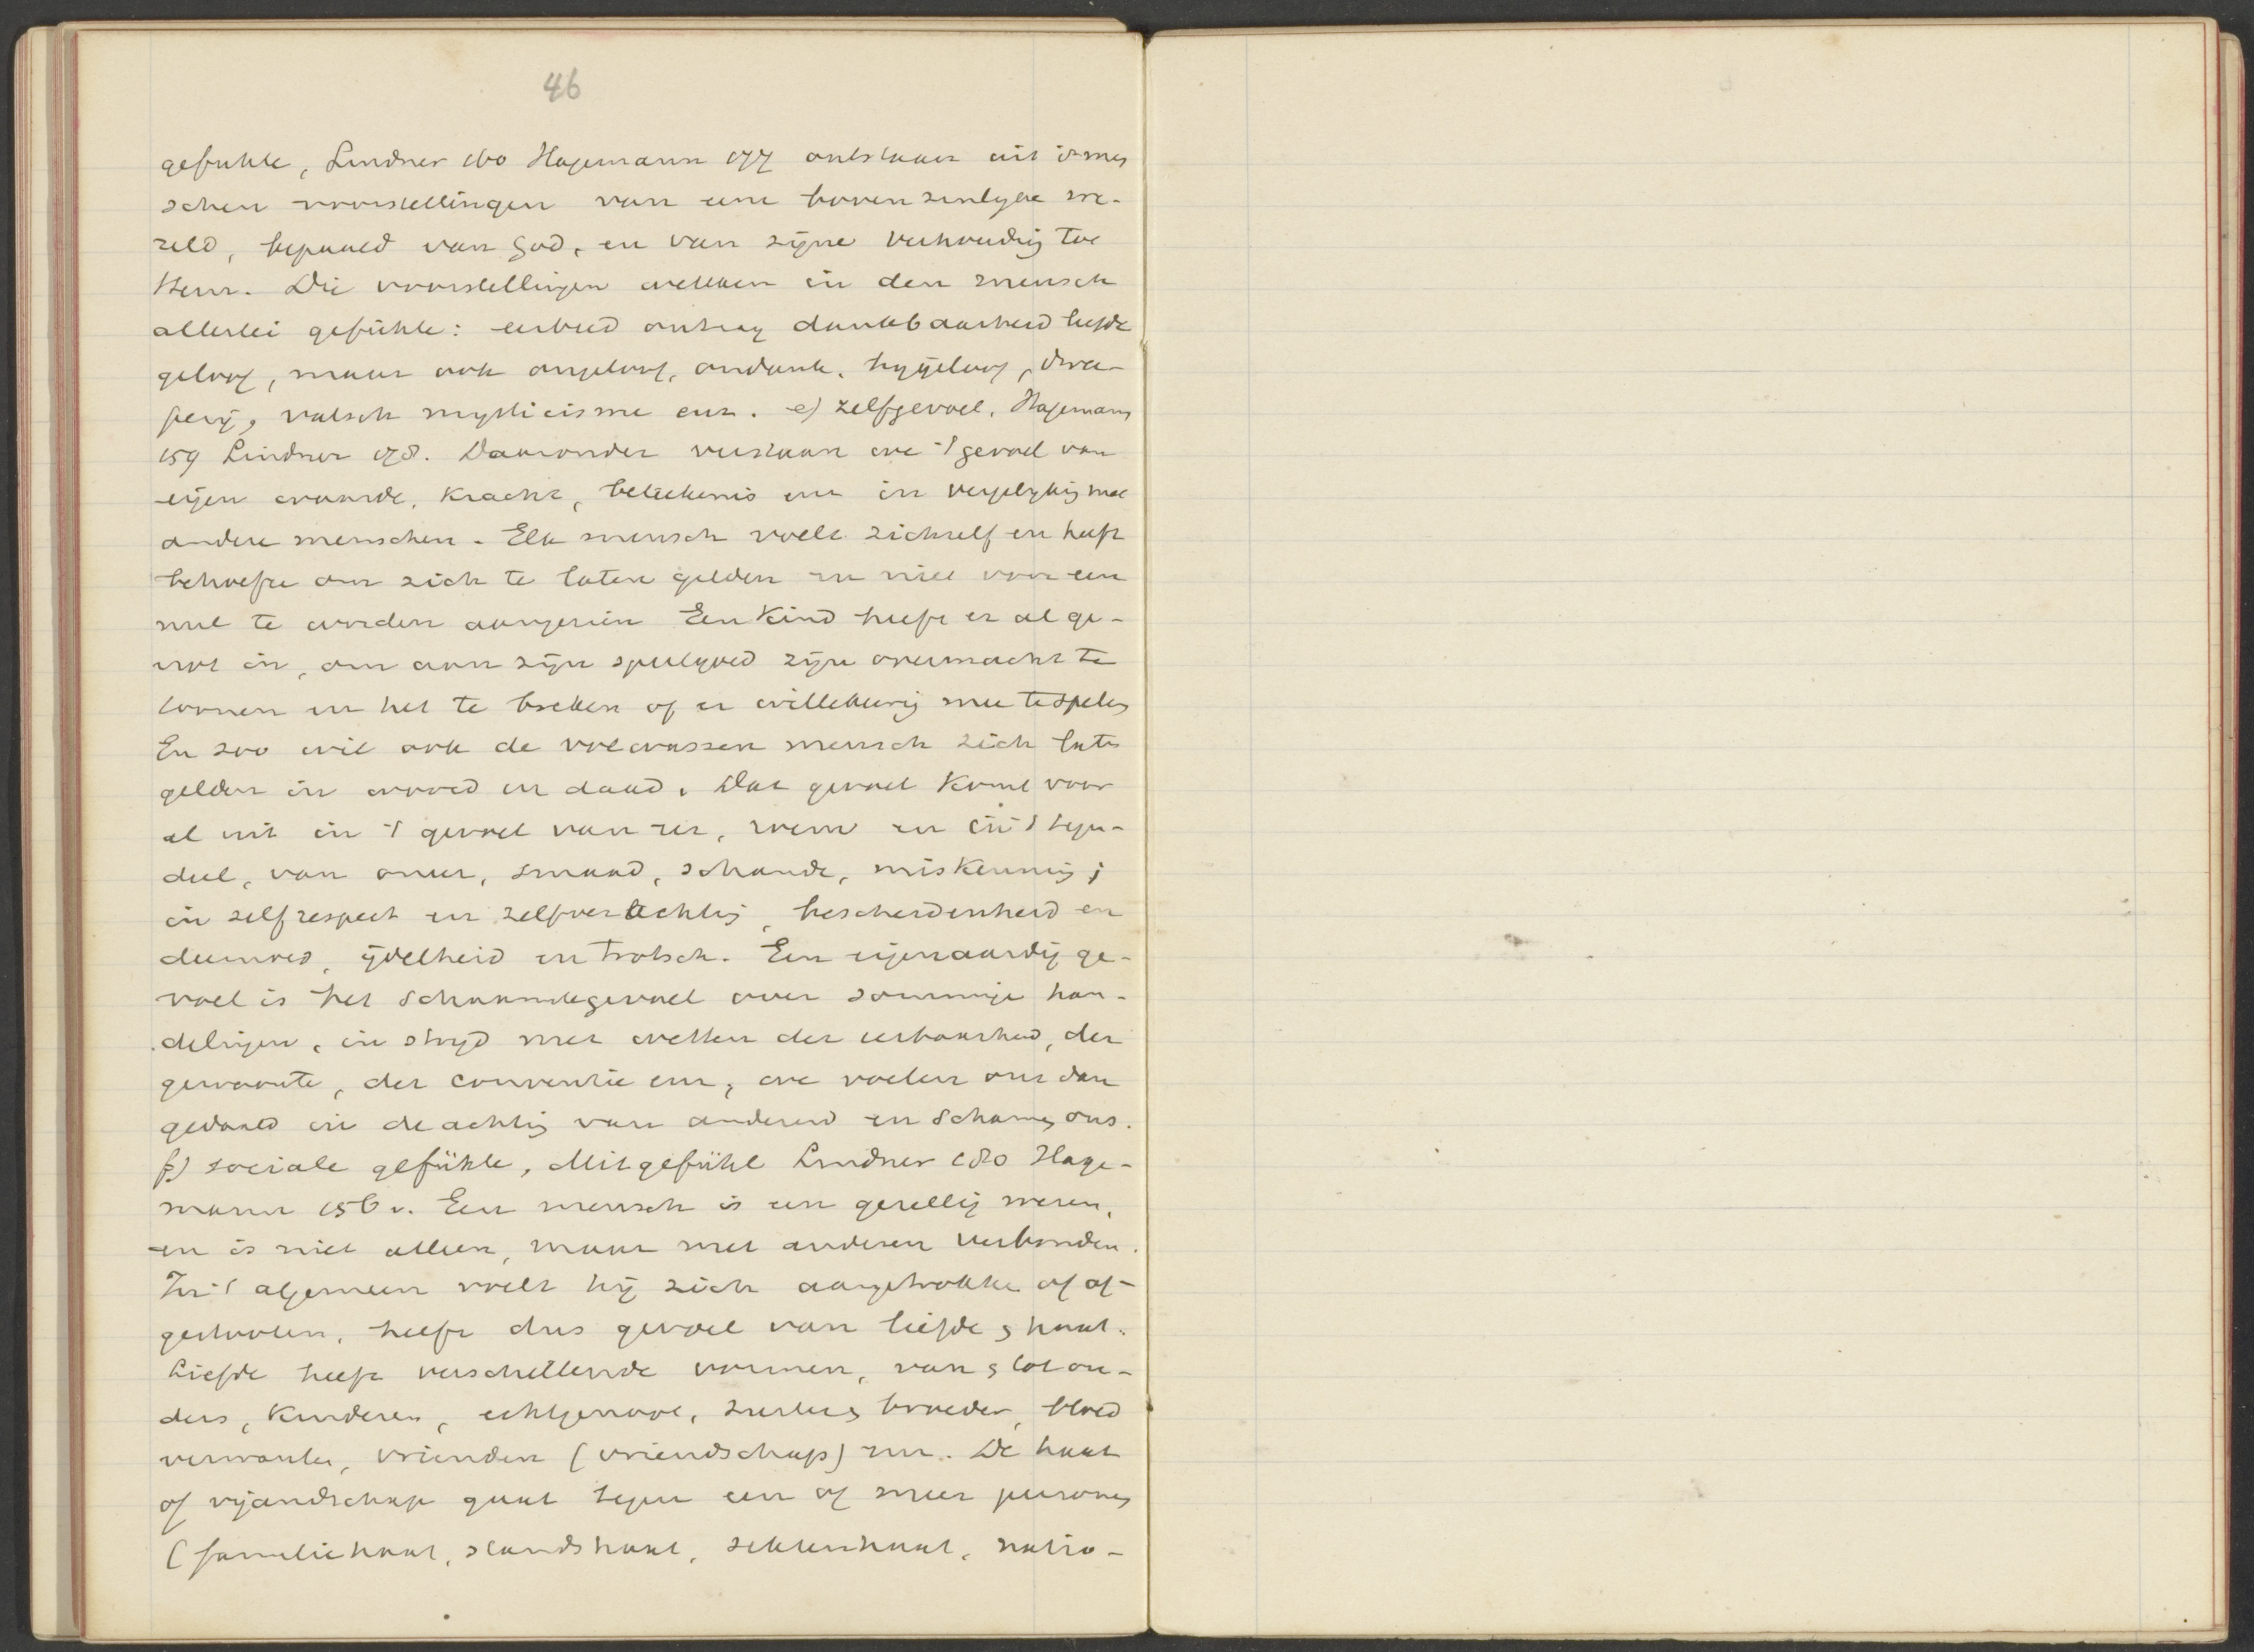 46
gefühle, Lindner 160 Hagemann 177 ontstaan uit 's men
schen voorstellingen van eene bovenzinlyke we-
reld, bepaald van God, en van zijne verhoudig tot
Hem. Die voorstellingen wekken in den mensch
allerlei gefühle: eerbied ontzag dankbaarheid liefde
geloof, maar ook ongeloof, ondank, bygeloof, dwee-
perij, valsch mysticisme enz. e) zelfgevoel, Hagemann
159 Lindner 178. Daaronder verstaan we 't gevoel van
eigen waarde, kracht, beteekenis enz in vergelykig met
andere menschen. Elk mensch voelt zichzelf en heeft
behoefte om zich te laten gelden en niet voor een
nul te worden aangezien Een kind heeft er al ge-
not in, om aan zijn speelgoed zijn overmacht te
toonen en het te breken of er willekeurig mee te spelen
En zoo wil ook de volwassen mensch zich laten
gelden in woord en daad. Dat gevoel komt voor
al uit in 't gevoel van eer, roem en in 't tegen-
deel, van oneer, smaad, schande, miskennig;
in zelfrespect en zelfverachtig, bescheidenheid en
deemoed, ijdelheid en trotsch. Een eigenaardig ge-
voel is het schaamtegevoel over sommige han-
delingen, in stryd met wetten der eerbaarheid, der
gewoonte, der conventie enz, we voelen ons dan
gedaald in de achtig van anderen en schamen ons.
f) sociale gefühle, Mitgefühl Lindner 180 Hage-
mann 156v. Een mensch is een gezellig wezen,
en is niet alleen, maar met anderen verbonden.
In 't algemeen voelt hij zich aangetrokken of af-
gestooten, heeft dus gevoel van liefde en haat.
Liefde heeft verschillende vormen, van en tot ou-
ders, kinderen, echtgenoot, zusters broeder, bloed
verwanten, vrienden (vriendschap) enz. De haat
of vijandschap gaat tegen een of meer personen
(familiehaat, standshaat, sektenhaat, natio-